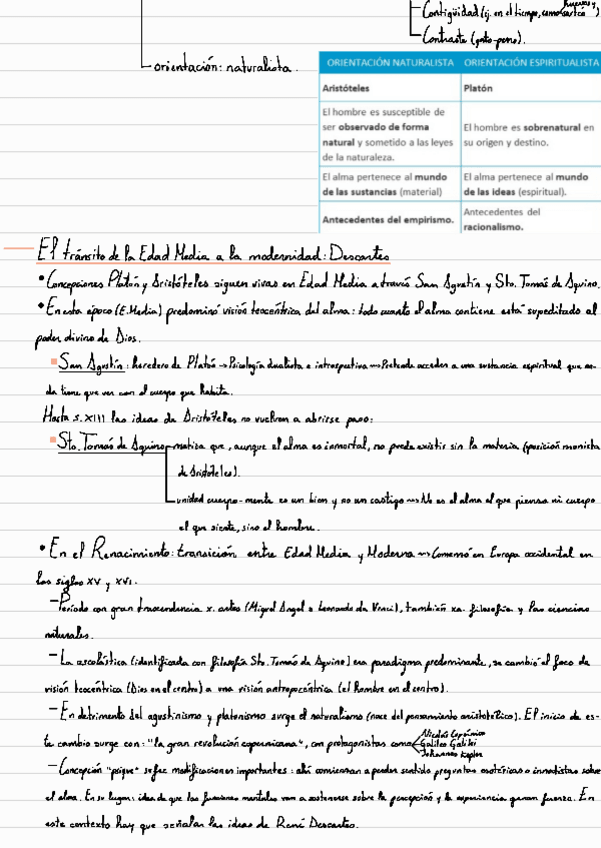 Contigüidad (ej. en el tiempo, como
Contraste (gato-perro).
orientación: naturalista.
ORIENTACIÓN NATURALISTA ORIENTACIÓN ESPIRITUALISTA
Aristóteles Platón
El hombre es susceptible de
ser observado de forma
natural y sometido a las leyes
de la naturaleza.
El hombre es sobrenatural en
su origen y destino.
El alma pertenece al mundo
de las sustancias (material)
El alma pertenece al mundo
de las ideas (espiritual).
Antecedentes del empirismo.
Antecedentes del
racionalismo.
El tránsito de la Edad Media a la modernidad: Descartes
• Concepciones Platón y Aristóteles siguen vivas en Edad Media a través San Agustín y Sto. Tomás de Aquino.
• En esta época (E.Media) predominó visión teocéntrica del alma: todo cuanto el alma contiene está supeditado al
poder divino de Dios.
San Agustín: heredero de Platón → Psicología dualista e introspectiva → Pretende acceder a una sustancia espiritual que na-
da tiene que ver con el cuerpo que habita.
Hasta s.XIII las ideas de Aristóteles no vuelven a abrirse paso:
Sto. Tomás de Aquino matiza que, aunque el alma es inmortal, no puede existir sin la materia (posición monista
de Aristóteles).
unidad cuerpo-mente es un bien y no un castigo → No es el alma el que piensa ni cuerpo
el que siente, sino el hombre.
• En el Renacimiento: transición entre Edad Media y Moderna → Comenzó en Europa occidental en
los siglos XV y XVI.
- Período con gran trascendencia x. artes (Miguel Angel o Leonardo da Vinci), también xa. filosofía y las ciencias
naturales.
- La escolástica (identificada con filosofía Sto. Tomás de Aquino) era paradigma predominante, se cambió el foco de
visión teocéntrica (Dios en el centro) a una visión antropocéntrica (el hombre en el centro).
- En detrimento del agustinismo y platonismo surge el naturalismo (nace del pensamiento aristotélico). El inicio de es-
te cambio surge con: "la gran revolución copernicana", con protagonistas como
Nicolás Copérnico
Galileo Galilei
Johannes Kepler
- Concepción "psique" sufre modificaciones importantes: ahí comienzan a perder sentido preguntas esotéricas o innatistas sobre
el alma. En su lugar: idea de que las funciones mentales van a sostenerse sobre la percepción y la experiencia ganan fuerza. En
este contexto hay que señalar las ideas de René Descartes.